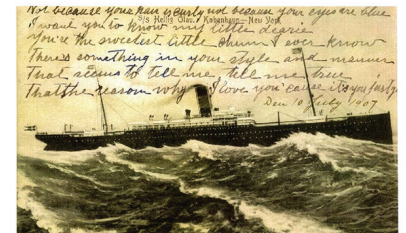 Not because your hair is curly, not because your eyes are blue
S/S Hellig Olav. København–New York
I want you to know my little degree
You're the sweetest little chum I ever knew
There's something in your style and manner
That seems to tell me, tell me true
That the reason why I love you 'cause it's you
Den 10 July 1907